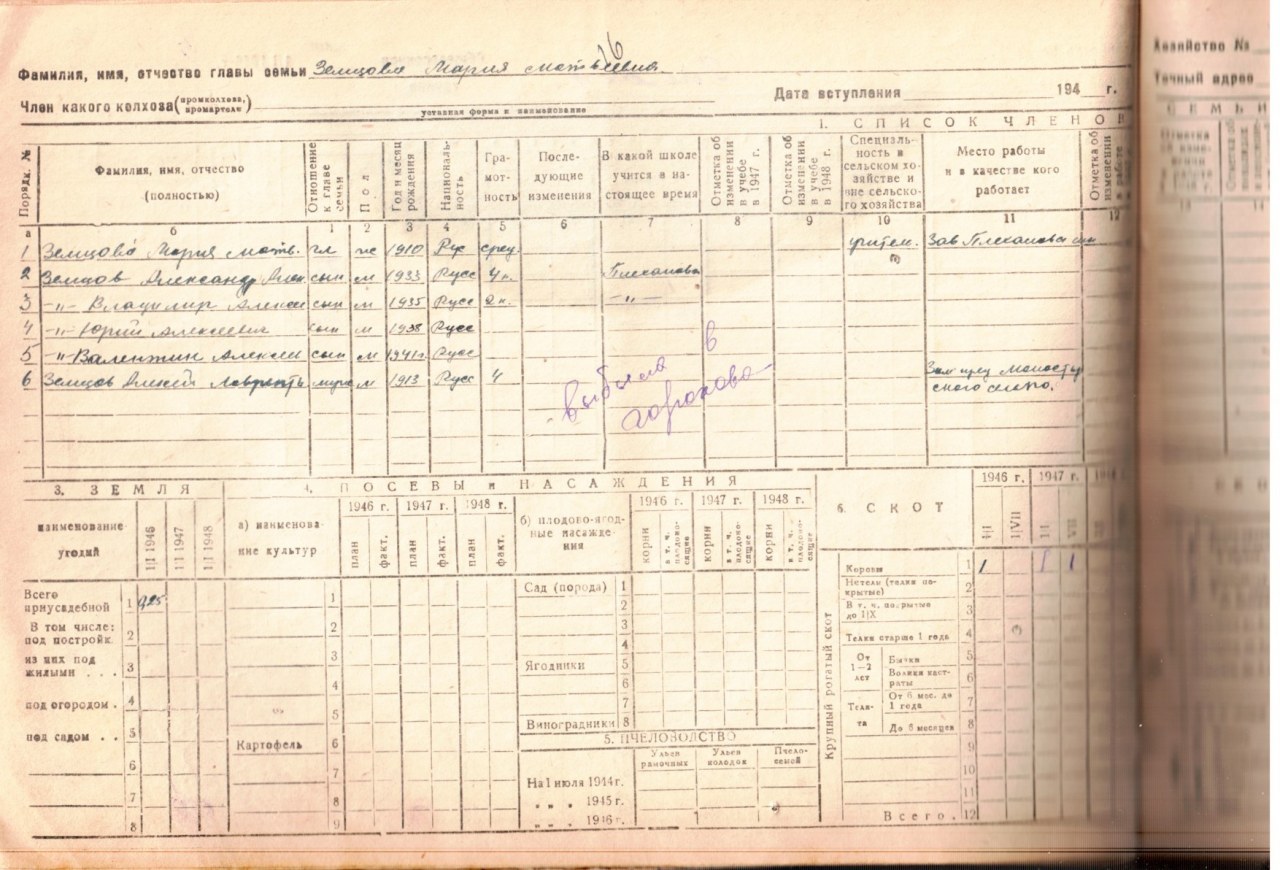 16
Фамилия, имя, отчество главы семьи Земцова Мария Матвеевна
Хозяйство №
Член какого колхоза (промколхоза, промартели)
уставная форма и наименование
Дата вступления 194 г.
Точный адрес
1. СПИСОК ЧЛЕНОВ
СЕМЬИ
Порядк. №
Фамилия, имя, отчество (полностью)
Отношение к главе семьи
Пол
Год и месяц рождения
Националь-ность
Гра-мот-ность
После-дующие изменения
В какой школе учится в на-стоящее время
Отметка об изменении в учебе в 1947 г.
Отметка об изменении в учебе в 1948 г.
Специаль-ность в сельском хо-зяйстве и вне сельско-го хозяйства
Место работы и в качестве кого работает
Отметка об изменении
а б 1 2 3 4 5 6 7 8 9 10 11 12
1 Земцова Мария Матв. гл ж 1910 Рус сред. учител. Зав Плеханово
2 Земцов Александр Алек сын м 1933 Русс 4 к. Плеханово
3 -"- Владимир Алексе сын м 1935 Русс 2 к. -"-
4 -"- Юрий Алексеевич сын м 1938 Русс
5 -"- Валентин Алексеи сын м 1941г Русс
6 Земцов Алексей Лавренть м 1913 Русс 4
выбыла в
горохово
3. ЗЕМЛЯ
наименование угодий
1|I 1946
1|I 1947
1|I 1948
Всего приусадебной 1 0,25
В том числе: под постройк. 2
из них под жилыми . . . 3
под огородом . 4
под садом . . 5
6
7
8
4. ПОСЕВЫ и НАСАЖДЕНИЯ
а) наименова-ние культур
1946 г. 1947 г. 1948 г.
план факт. план факт. план факт.
1
2
3
4
5
Картофель 6
7
8
9
б) плодово-ягод-ные насажде-ния
1946 г. 1947 г. 1948 г.
корни в т. ч. плодоно-сящие корни в т. ч. плодоно-сящие корни в т. ч. плодоно-сящие
Сад (порода) 1
2
3
4
Ягодники 5
6
7
Виноградники 8
5. ПЧЕЛОВОДСТВО
Ульев рамочных
Ульев колодок
Пчело-семей
На 1 июля 1944 г.
" " " 1945 г.
" " " 1946 г.
6. СКОТ
1946 г. 1947 г.
1|I 1|VII
Крупный рогатый скот
Коровы 1 1 1 1
Нетели (телки по-крытые) 2
В т. ч. покрытые до 1|IX 3
Телки старше 1 года 4
От 1—2 лет
Бычки 5
Волики каст-раты 6
Теля-та
От 6 мес. до 1 года 7
До 6 месяцев 8
9
10
11
Всего. 12